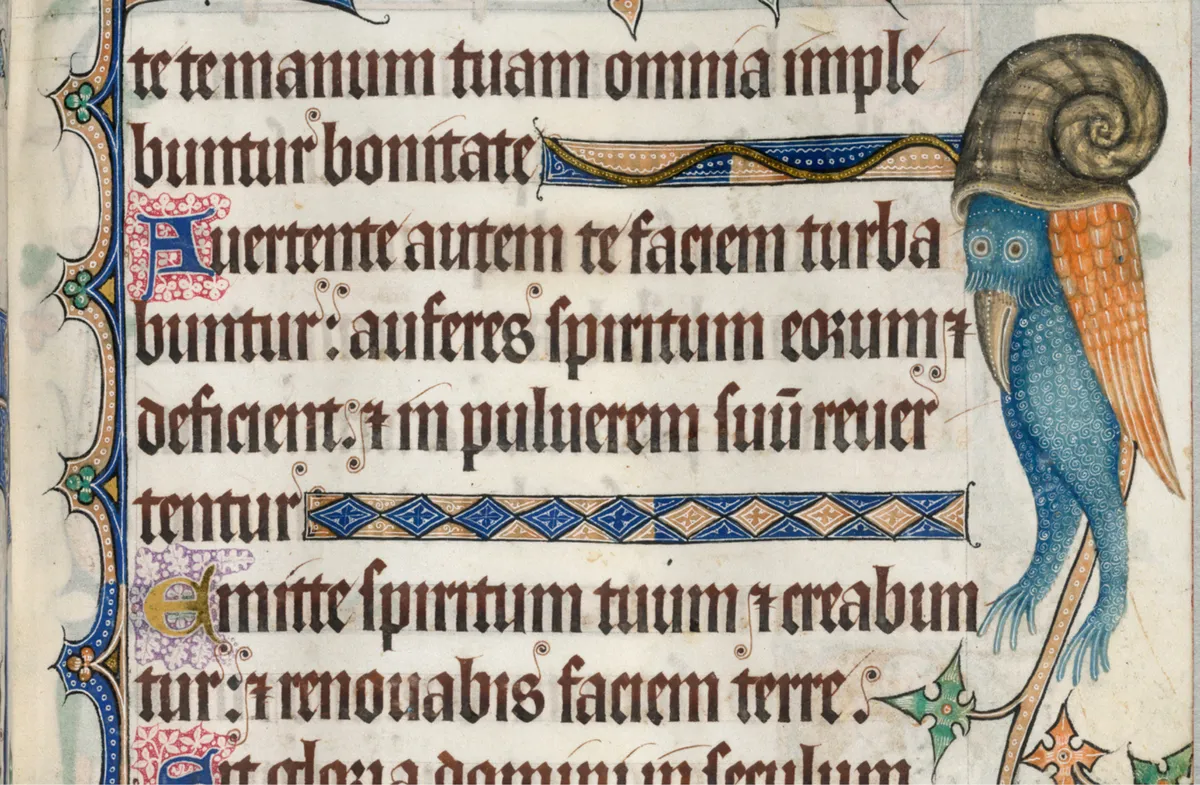 te te manum tuam omnia imple
buntur bonitate
Auertente autem te faciem turba
buntur: auferes spiritum eorum ⁊
deficient: ⁊ in puluerem suū reuer
tentur
Emitte spiritum tuum ⁊ creabun
tur: ⁊ renouabis faciem terre.
Sit gloria domini in seculum